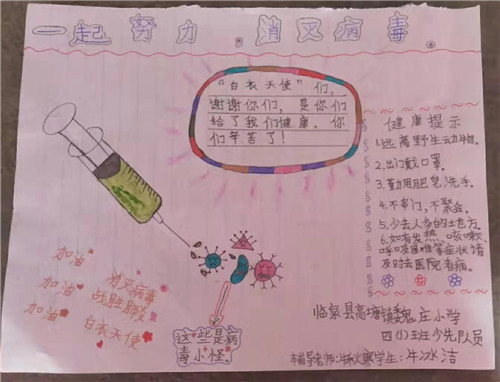 一起努力,消灭病毒。
“白衣天使”们,
谢谢你们,是你们
给了我们健康。你
们辛苦了!
健康提示
1.远离野生动物。
2.出门戴口罩。
3.勤用肥皂洗手。
4.不串门,不聚会。
5.少去人多的土也方。
6.如有发热、咳嗽、
呼吸困难等症状请
及时去医院看病。
加油
加油
加油
消灭病毒
战胜肺炎
白衣天使
这些是病
毒小怪。
临泉县高塘镇魏庄小学
四(1)班少先队员
辅导老师:
学生:牛冰洁